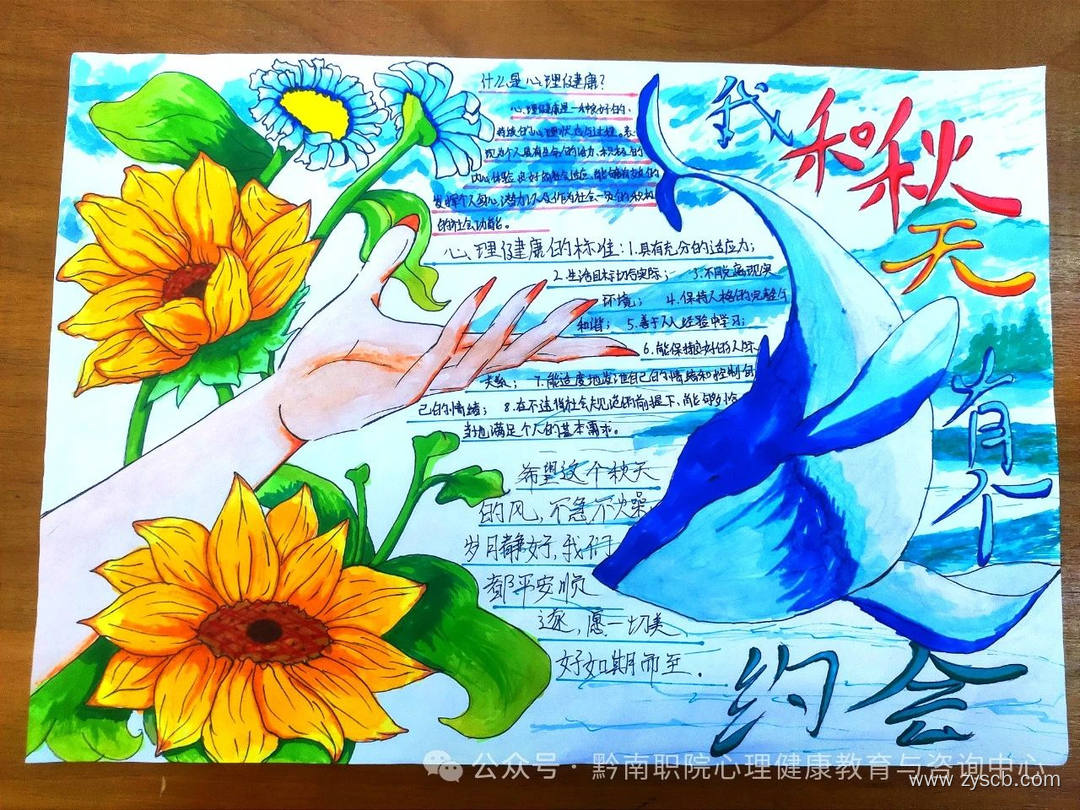 什么是心理健康?
心理健康是一种良好的、
持续的心理状态与过程。表
现为个人具有生命的活力、积极的
内心体验、良好的社会适应、能够有效的
发挥个人身心潜力以及作为社会一员的积极
的社会功能。
心理健康的标准:1.具有充分的适应力;
2.生活目标切合实际; 3.不脱离现实
环境; 4.保持人格的完整与
和谐; 5.善于从经验中学习;
6.能保持良好的人际
关系; 7.能适度地发泄自己的情绪和控制自
己的情绪; 8.在不违背社会规范的前提下,能够恰
当地满足个人的基本需求。
希望这个秋天
的风,不急不燥,
岁月静好,我们
都平安顺
遂,愿一切美
好如期而至.
我和秋天有个约会
公众号·黔南职院心理健康教育与咨询中心
www.zyscb.com